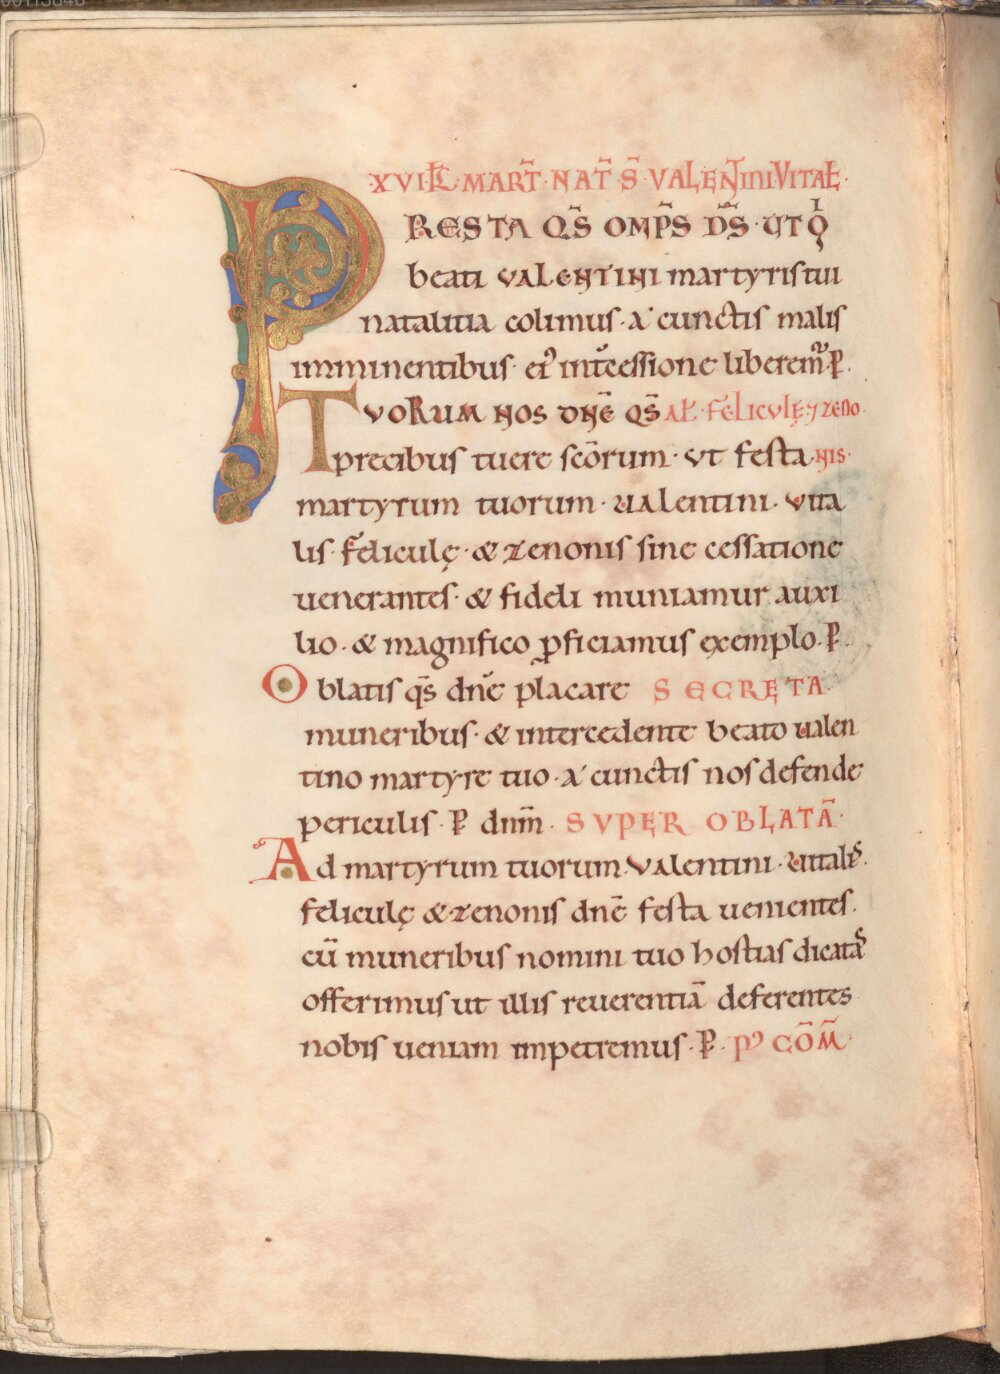 XVI K̄L MART̄ NAT̄ S̄ VALENTINI VITAƚ·
PRESTA Q̄S OMP̄S D̄S· UT Qⁱ
beati VALENTINI martyris tui
natalitia colimus· a cunctis malis
imminentibus· ei' int̄cessione liberem̄· P̄·
TVORUM NOS DN̄E Q̄S Aƚ· FELICVLĘ ⁊ ZENO
precibus tuere sc̄orum· ut festa NIS·
martyrum tuorum· ualentini· vita
lis· feliculę· & zenonis sine cessatione
uenerantes· & fideli muniamur auxi
lio· & magnifico ꝓficiamus exemplo· P̄·
Oblatis q̄s dn̄e placare SECRETA·
muneribus· & intercedente beato ualen
tino martyre tuo· a cunctis nos defende
periculis· P̄ dnm̄· SVPER OBLATĀ·
Ad martyrum tuorum Valentini· uitalis·
feliculę & zenonis dn̄e festa uenientes·
cū muneribus nomini tuo hostias dicatas
offerimus ut illis reuerentiā deferentes
nobis ueniam impetremus· P̄· Pꝰ CŌM̄